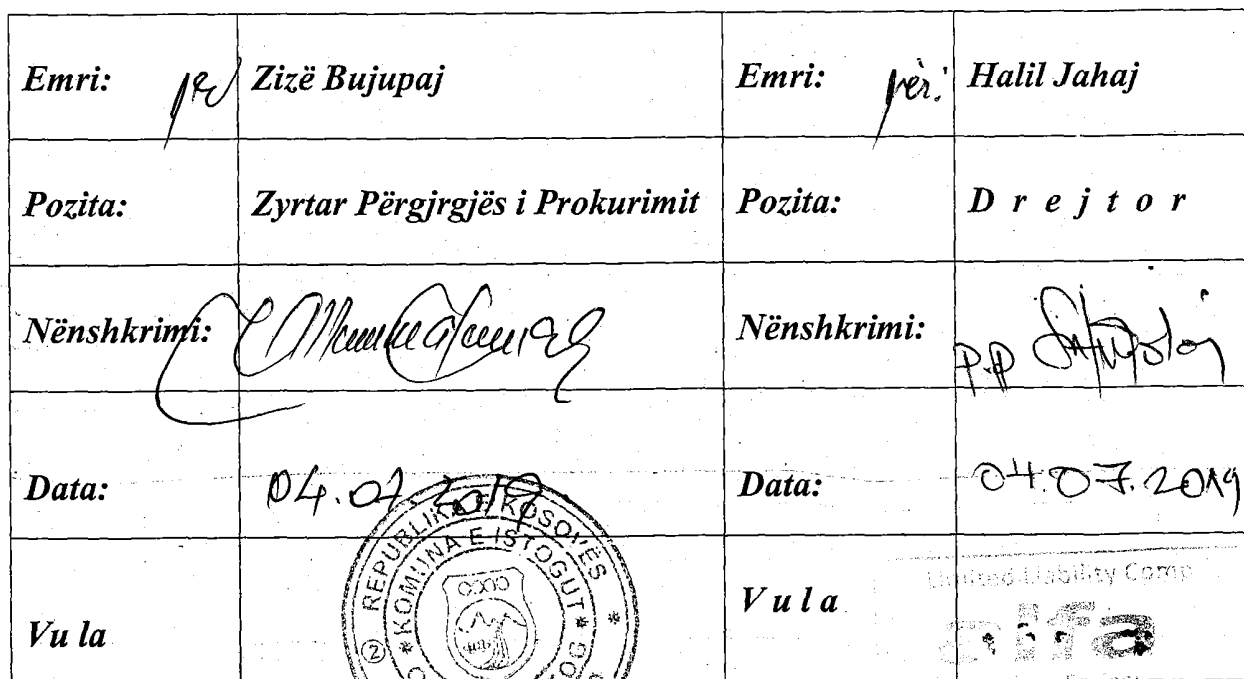 Emri: për Zizë Bujupaj Emri: për: Halil Jahaj
Pozita: Zyrtar Përgjrgjës i Prokurimit Pozita: D r e j t o r
Nënshkrimi: Nënshkrimi: p.p
Data: 04.07.2019 Data: 04.07.2019
Vu la V u l a
REPUBLIKA E KOSOVËS
KOMUNA E ISTOGUT
2
Limited Liability Comp
alfa